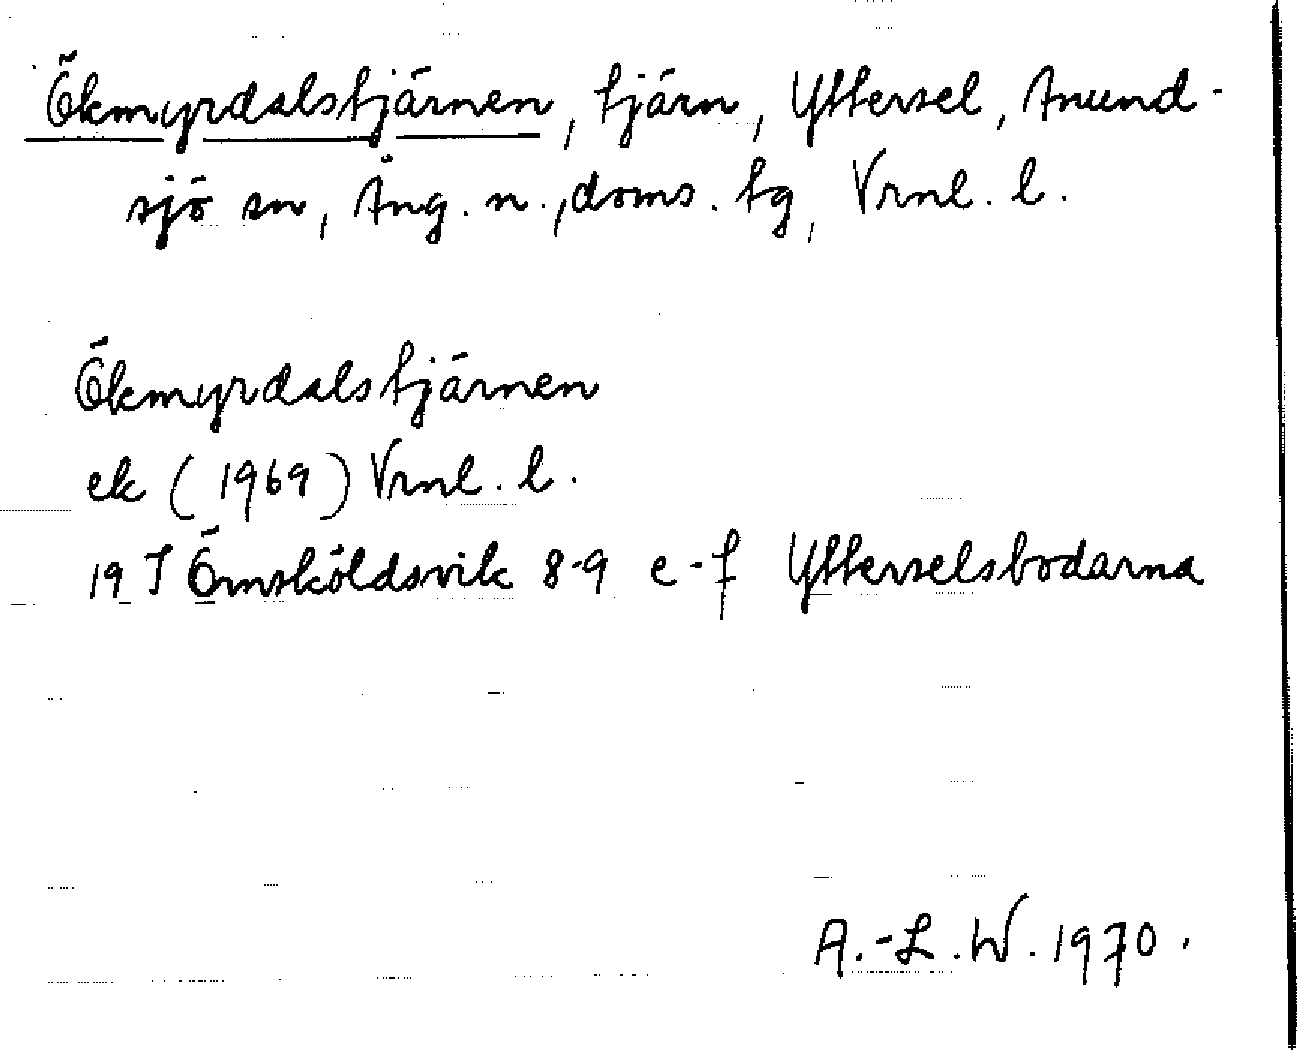 Ökmyrdalstjärnen, tjärn, Yttersel, Anund-
sjö sn, Ång. n., doms. tg, Vrnl. l.
Ökmyrdalstjärnen
ek (1969) Vrnl. l.
19 I Örnsköldsvik 8-9 e-f Ytterselsbodarna
A.-L. W. 1970.